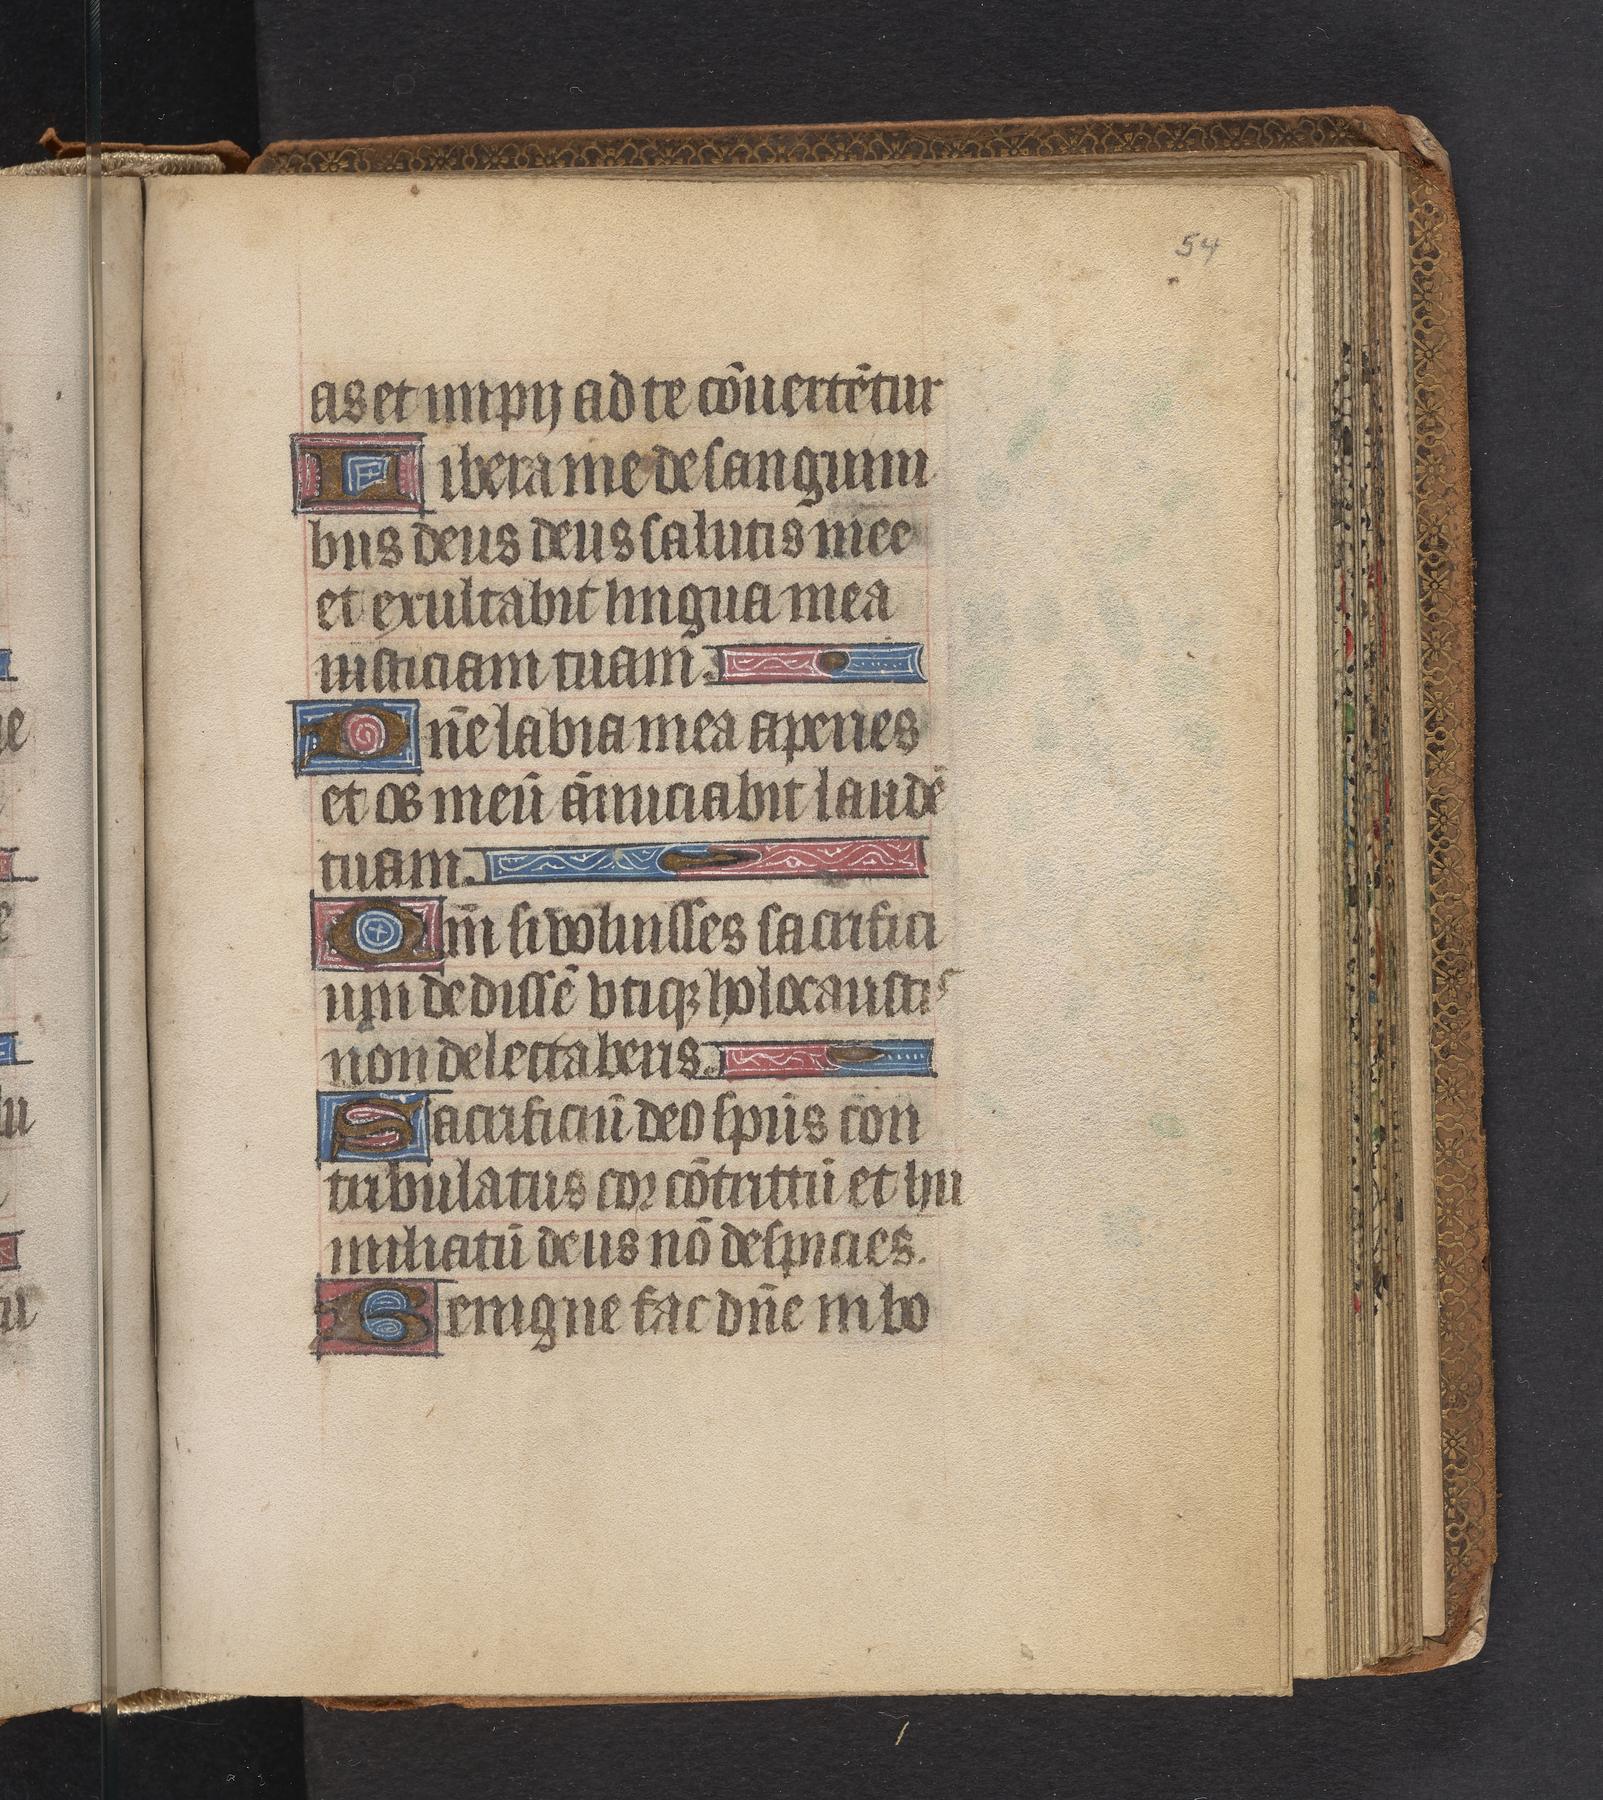 54
as et impij ad te cōuertētur
Libera me de sanguini
bus deus deus salutis mee
et exultabit lingua mea
iusticiam tuam.
Dn̄e labia mea aperies
et os meū ān̄uciabit laudē
tuam.
Qm̄ si voluisses sacrifici
um dedissē vtiqꝫ holocaustis
non delectaberis.
Sacrificiū deo spūs con
tribulatus cor cōtrittū et hu
miliatū deus nō despicies.
Benigne fac dn̄e in bo